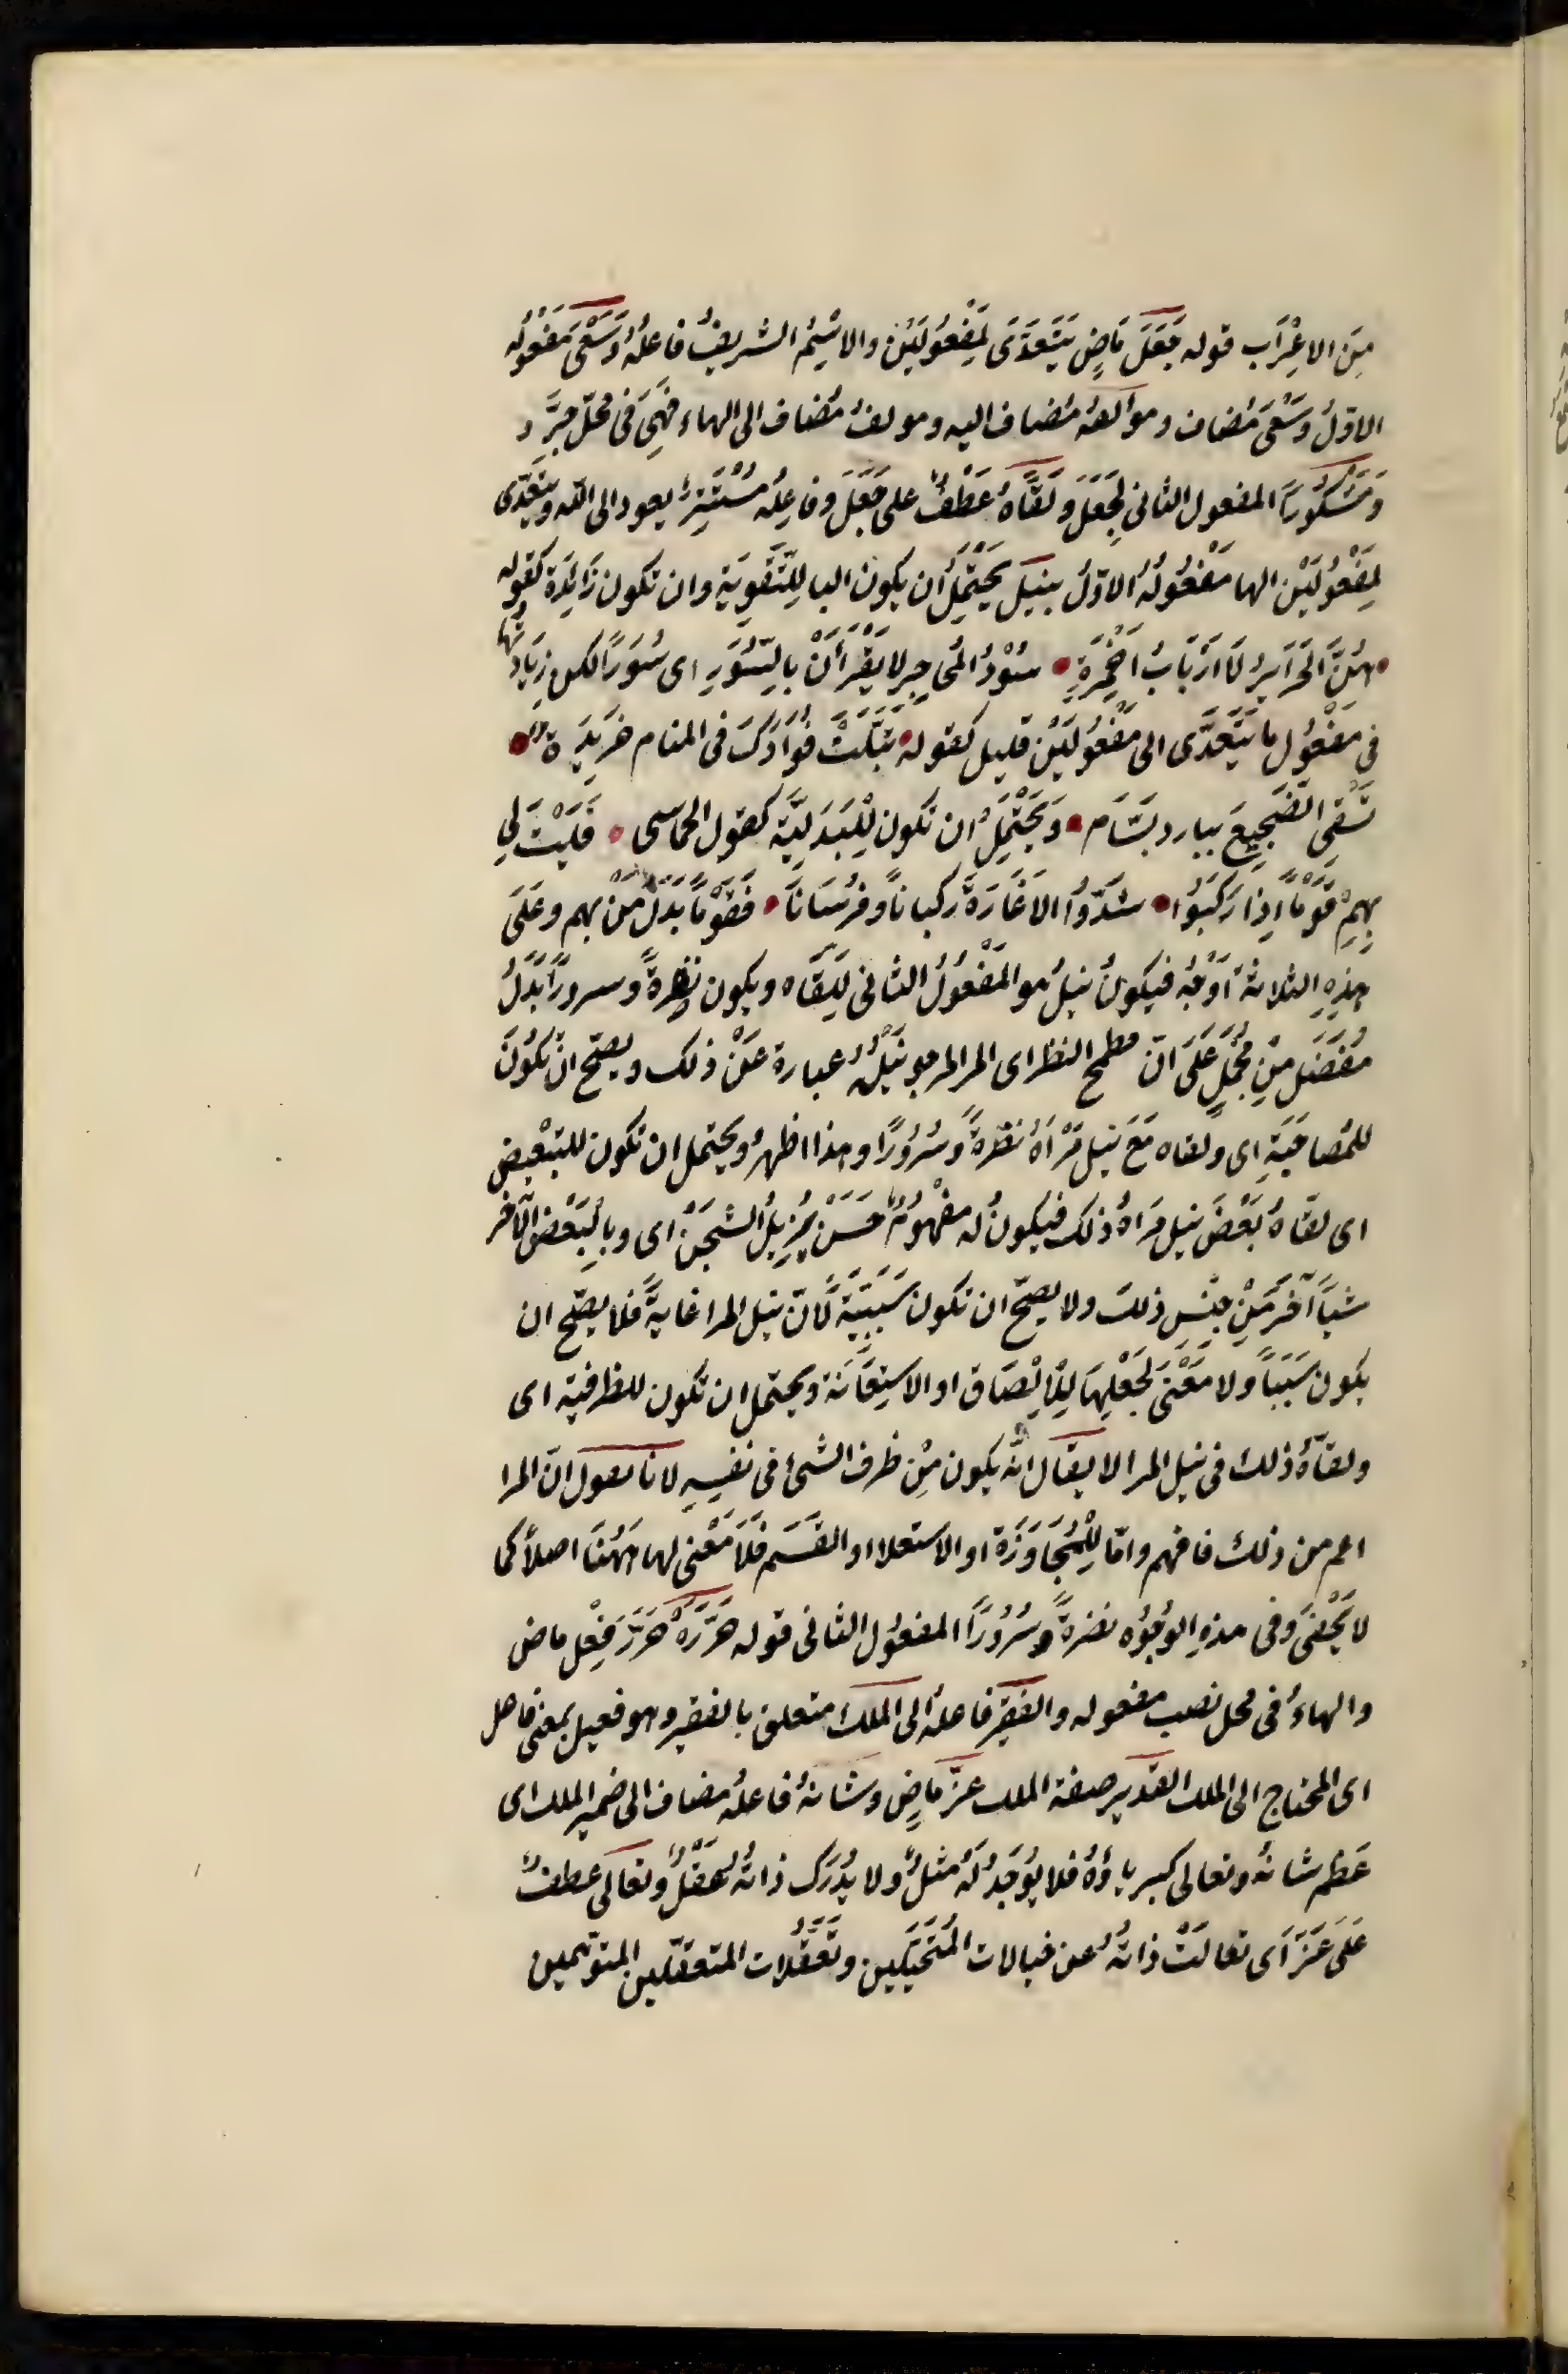 مِنَ الاعْرَاب قوله جَعَلَ مَاضٍ يَتَعَدَّى لِمَفْعُولَيْن والاسْمُ الشريفُ فاعلُهُ وَسَعْىَ مَفْعُوله
الاوّلُ وَسَعْىَ مُضاف ومؤلفه مُضاف اليه ومولفُ مُضاف الى الهاء فهِىَ فى محلّ جرّ و
وَمَشْكُورًا المفعول الثانى لِجَعَلَ وَلَقَّاهُ عَطْفٌ على جَعَلَ وفاعِلُه مُسْتَتِرٌ يعود الى الله ويتعدّى
لمفْعُولَيْن الها مَفْعُولُهُ الاوّلُ بنيلَ يَحْتَمِلُ ان يكون البا لِلتَّقوِيَةِ وان تكون زَائِدَة كقوله
هُنَّ الحَرَايِرُ لَا ارْبَابُ اَخْمِرَةٍ سُوْدُ المَحاجِرِ لا يَقْرَأْنَ بالسُّوَرِ اى سُوَرًا لكن زِيَادتها
فى مَفْعُول ما يَتَعَدَّى الى مَفْعُولَيْن قليل كقوله تَبَلَتْ فُوَادَكَ فى المنام خَرِيدَة
تَسْقِى الضَّجِيعَ ببارد بَسَّام وَيَحْتَمِلُ ان تكون لِلْبَدَلِيَّة كقول الحماسى فَلَيْتَ لِى
بِهِمْ قَوْمًا اِذا رَكِبُوا شَدُّوا الاغَارَةَ ركبانًا وفرْسَانَا فَقَوْمًا بَدَلٌ مَنْ بهم وعَلَى
هذِهِ الثلاثة اَوْجُه فيكونُ نيلُ هو المَفْعُولُ الثانى لِلَقَّاه ويكون نضرةً وسرورًا بَدَلُ
مُفَصَّل مِنْ مُجْمَلٍ عَلَى انّ مطمح النظر اى المرا المرجو نَيْلُهُ عبارة عَنْ ذلك ويصحّ انْ يكُونَ
للمُصاحَبَةِ اى ولقاه مَعَ نيل مَرْآهُ نضرةً وَسُرُورًا وهذا اظهرُ ويحتمل ان تكون للتبْعِيض
اى لقّاهُ بَعْضَ نيل مَرآهُ ذلك فيكونُ له مفْهُومٌ حَسَنٌ يُزِيلُ الشَّجَنَ اى وبالبَعْضِ الآخر
شيًا آخَرَ مَنْ جِنْسِ ذلك ولا يصحّ ان تكون سَبَبِيَّة لانّ نيل المرا غايةً فلا يصّلح ان
يكون سَبَبًا ولا مَعْنَى لِجَعْلِها لِلْاِلْصَاق او الاستِعَانَة ويحتمل ان تكون للظرفيه اى
ولقّاهُ ذلك فى نيل المرا لا يقال انّه يكون مِنْ ظرف الشىء فى نفسِهِ لانا نقول انّ المرا
اعم من ذلك فافهم وامّا لِلْمُجَاوَزَة او الاستعلا او القَسَم فَلَا مَعْنى لها هَهُنَا اصلًا كما
لا يَخْفَى وفى هذهِ الوُجُوْه نضرةً وسُرُورًا المفعُول الثانى قوله حَرَّرَهُ حَرَّرَ فِعْل ماض
والهاءُ فى محل نصب مفعوله والفقِير فاعلُه الى الملك متعلق بالفقير وهو فعيل بمعنى فاعل
اى المحتاج الى الملك القدير صفة الملك عزّ ماضٍ وشانهُ فاعلهُ مضاف الى ضمير الملك اى
عَظم شانهُ وتعالى كبرياؤهُ فلا يُوْجَدُ لَهُ مثلٌ ولا يُدْرَك ذاتُه لعَقْلُ وتعالى عطفٌ
عَلَى عَزَّ اى تعالَتْ ذاتهُ عن خيالات المُتَخَيّلين وتَعَقُّلات المتعقّلين المتوّهمين